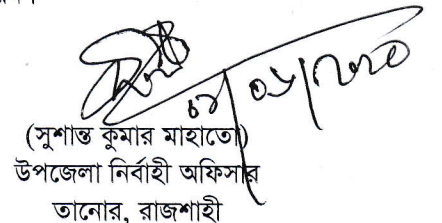 (সুশান্ত কুমার মাহাতো)
উপজেলা নির্বাহী অফিসার
তানোর, রাজশাহী